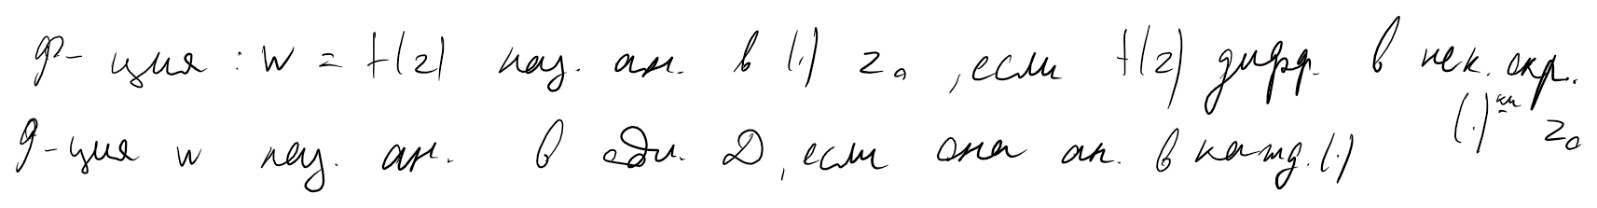 ф-ция : w = f(z) наз. ан. в (·) z₀, если f(z) дифф. в нек. окр. (·)ки z₀
ф-ция w наз. ан. в обл. D, если она ан. в кажд. (·)